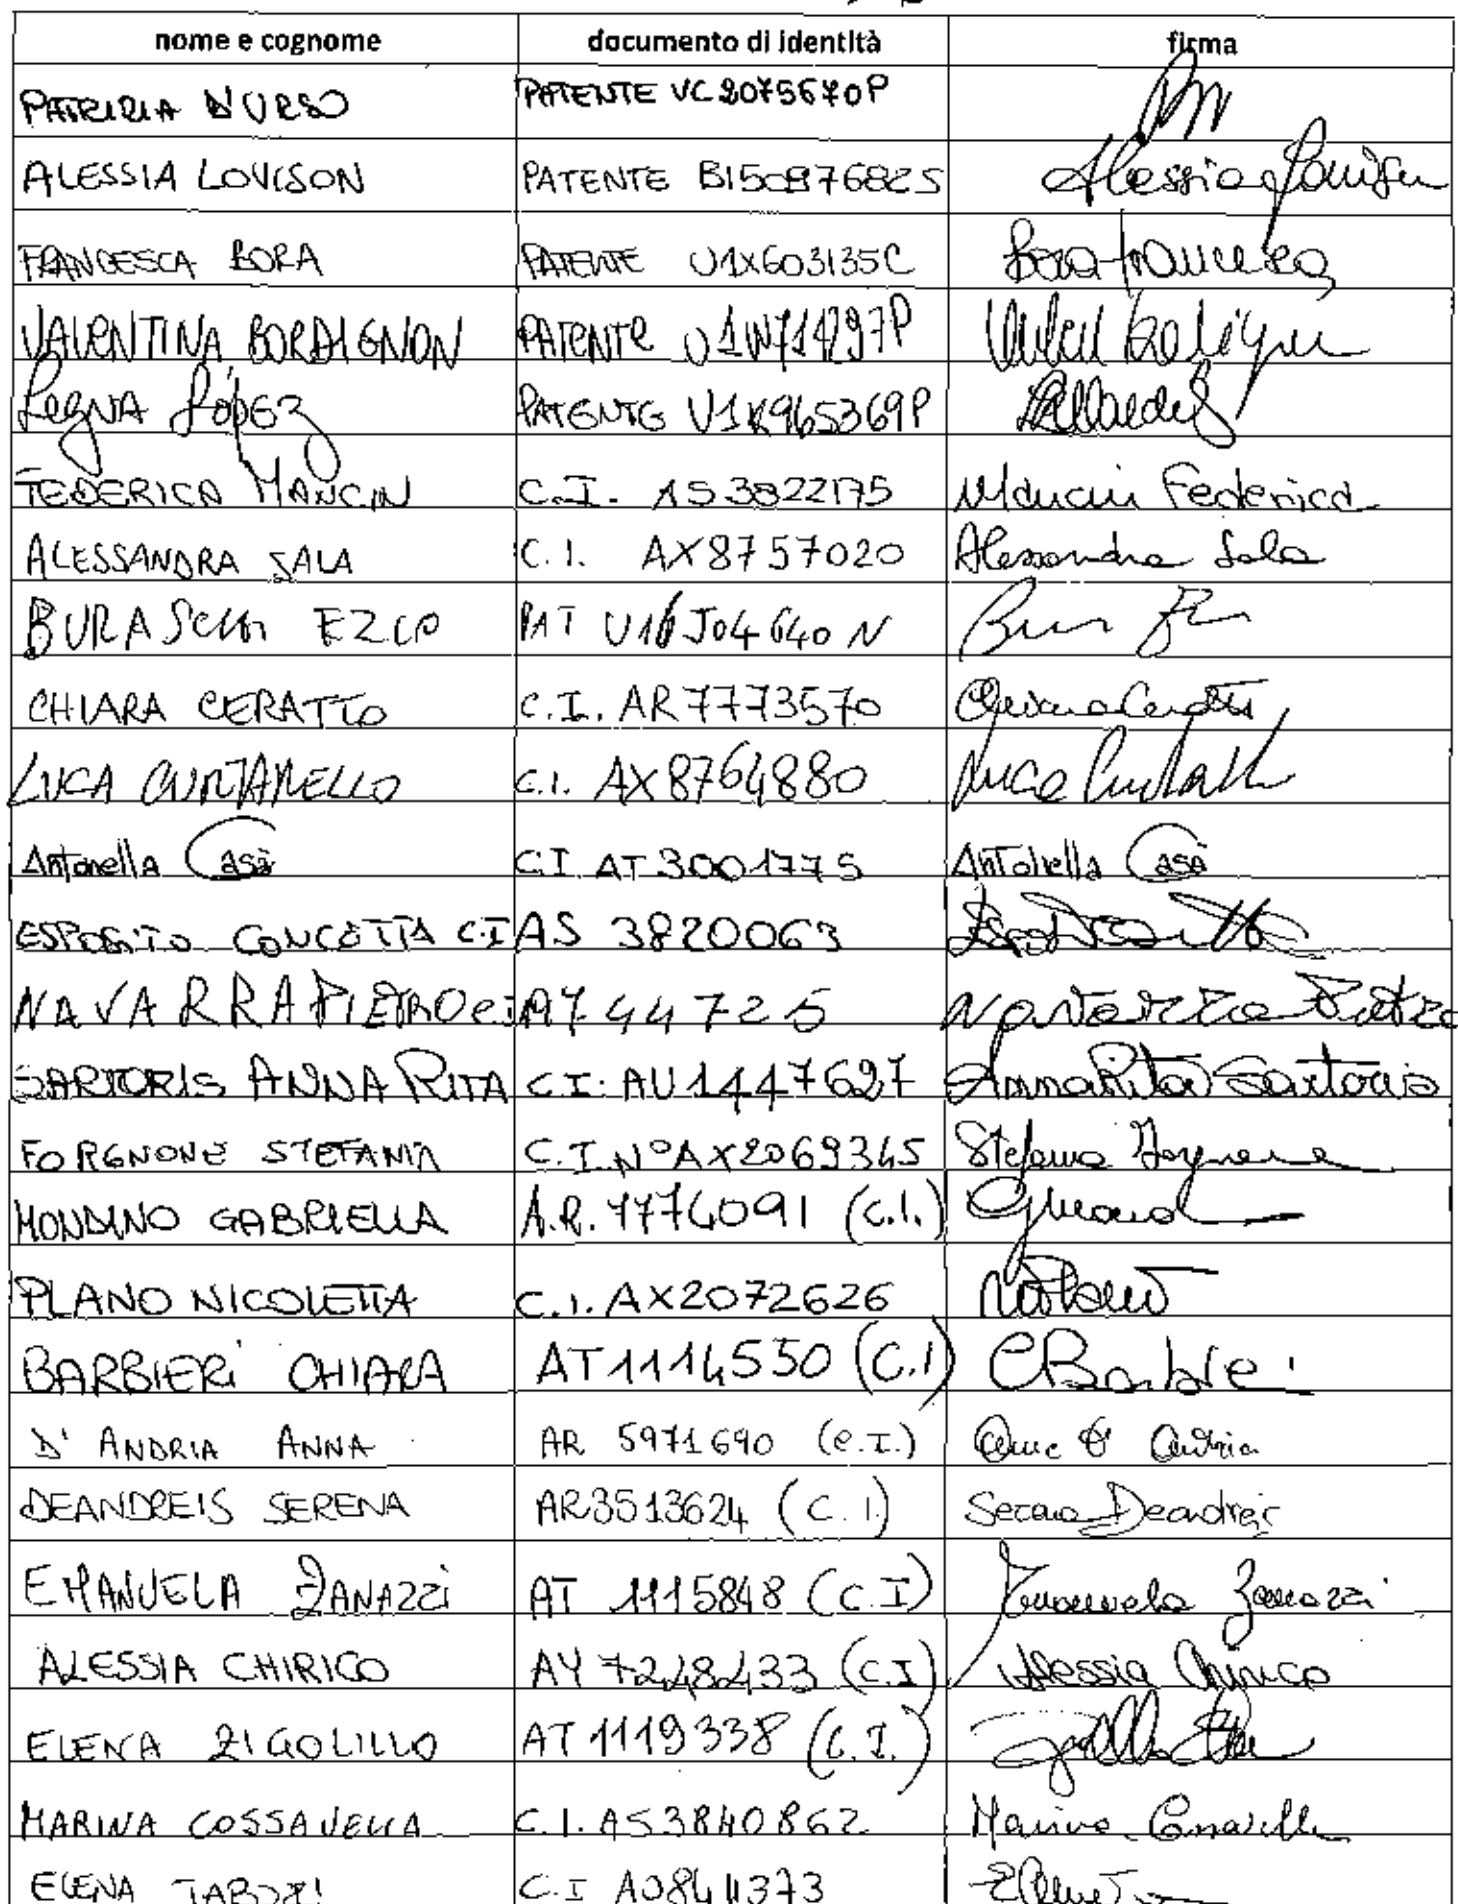 nome e cognome documento di identità firma
PATRIZIA D'URSO PATENTE VC2075670P
ALESSIA LOVISON PATENTE BI5087682S Alessia Lovison
FRANCESCA BORA PATENTE U1X603135C Bora Francesca
VALENTINA BORDIGNON PATENTE U1W714297P
LEGNA LÓPEZ PATENTE U1K965369P
FEDERICA MANCIN C.I. AS3822175 Mancin Federica
ALESSANDRA SALA C.I. AX8757020 Alessandra Sala
BURASCHI EZIO PAT U16J04640N
CHIARA CERATTO C.I. AR7773570 Chiara Ceratto
LUCA CURTARELLO C.I. AX8764880 Luca
Antonella Casà C.I. AT3001775 Antonella Casà
ESPOSITO CONCETTA C.I AS 3820063
NAVARRA PIETRO C.I A744725 Navarra Pietro
SARTORIS ANNA RITA C.I: AU1447627 Anna Rita Sartoris
FORGNONE STEFANIA C.I. N°AX2069345 Stefania Forgnone
MONDINO GABRIELLA A.R. 7774091 (C.I.)
PLANO NICOLETTA C.I. AX2072626
BARBIERI CHIARA AT1114550 (C.I) C Barbieri
D'ANDRIA ANNA AR 5971690 (C.I.) Anna D'Andria
DEANDREIS SERENA AR3513624 (C.I) Serena Deandreis
EMANUELA ZANAZZI AT 1115848 (C.I) Emanuela Zanazzi
ALESSIA CHIRICO AY 7248433 (C.I) Alessia Chirico
ELENA ZIGOLILLO AT 1119338 (C.I.)
MARINA COSSAVELLA C.I. AS3840862 Marina Cossavella
ELENA C.I